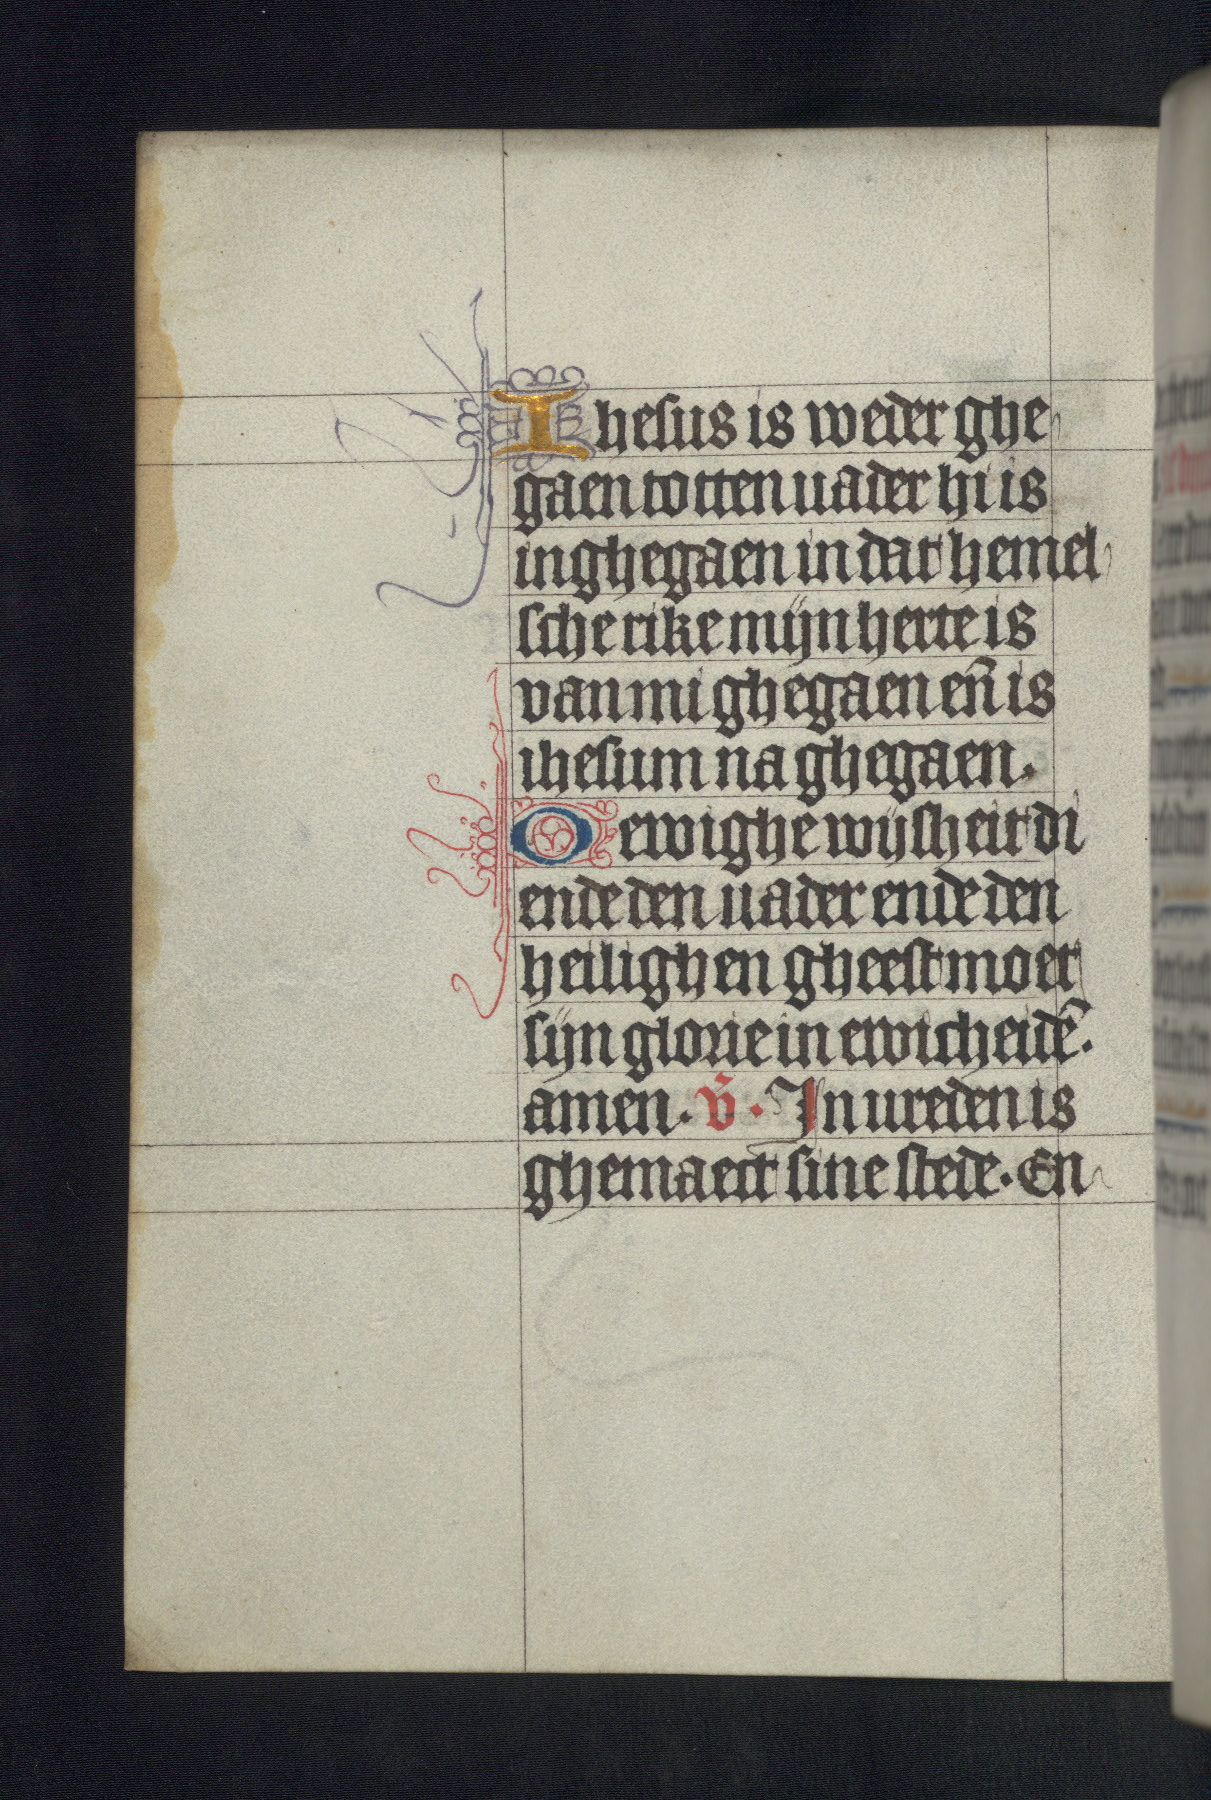 Ihesus is weder ghe
gaen totten uader hi is
in ghegaen in dat hemel
sche rike mijn herte is
van mi ghegaen en̄ is
ihesum na ghegaen.
O ewighe wijsheit di
ende den uader ende den
heilighen gheest moet
sijn glorie in ewicheidē.
amen. v̄. In ureden is
ghemaect sine stede. En